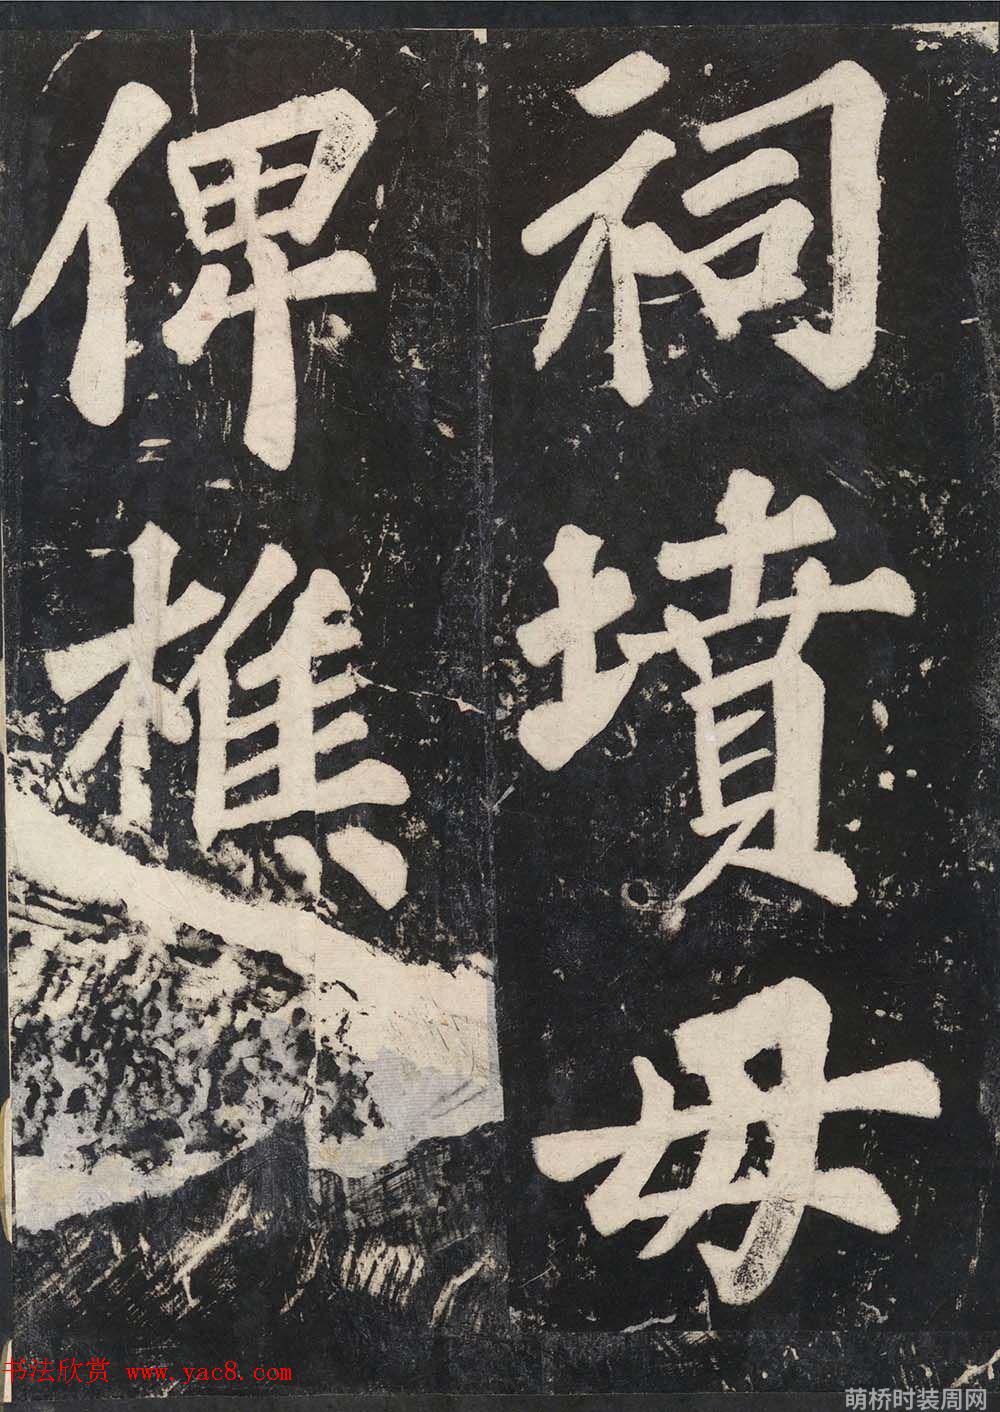 祠墳毋
俾樵
书法欣赏 www.yac8.com
萌桥时装周网